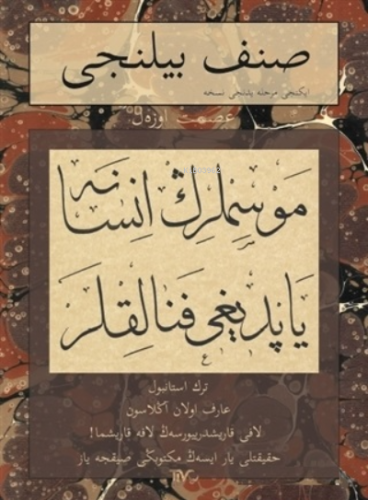 صنف بیلنجی
ایكنجی مرحله یلنجی نسخه
عصمت اوزەل
موسملرڭ انسانه
یاپدیغی فنالقلر
ترك استانبول
عارف اولان آڭلاسون
لافی قاریشدیرییورسەڭ لافه قاریشما!
حقیقتلی یار ایسەڭ مكتوبڭی صیقجه یاز